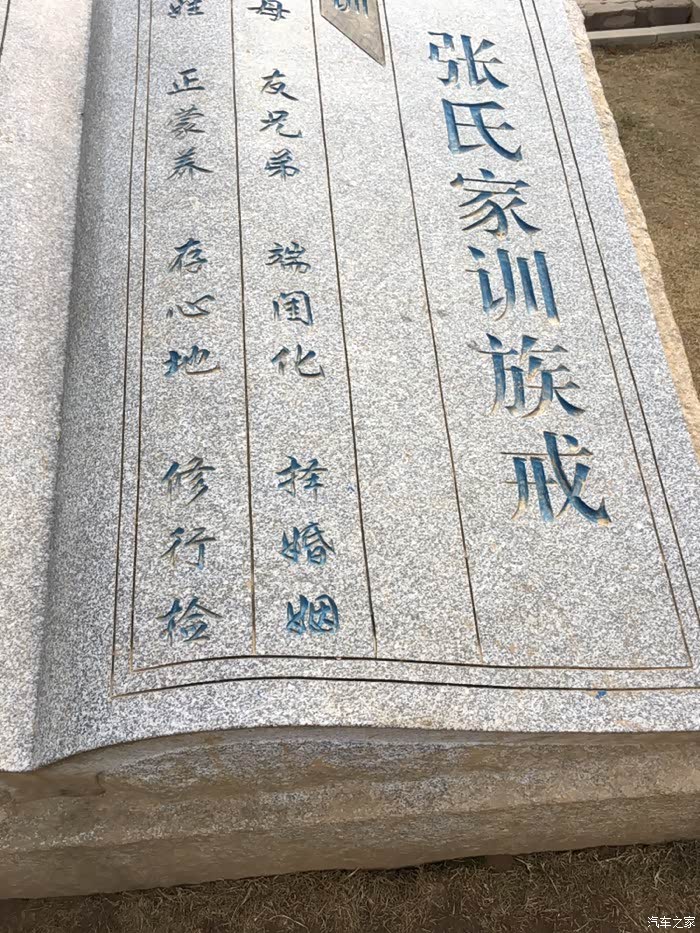 张氏家训族戒
训
母 友兄弟 端闺化 择婚姻
姓 正蒙养 存心地 修行检
汽车之家